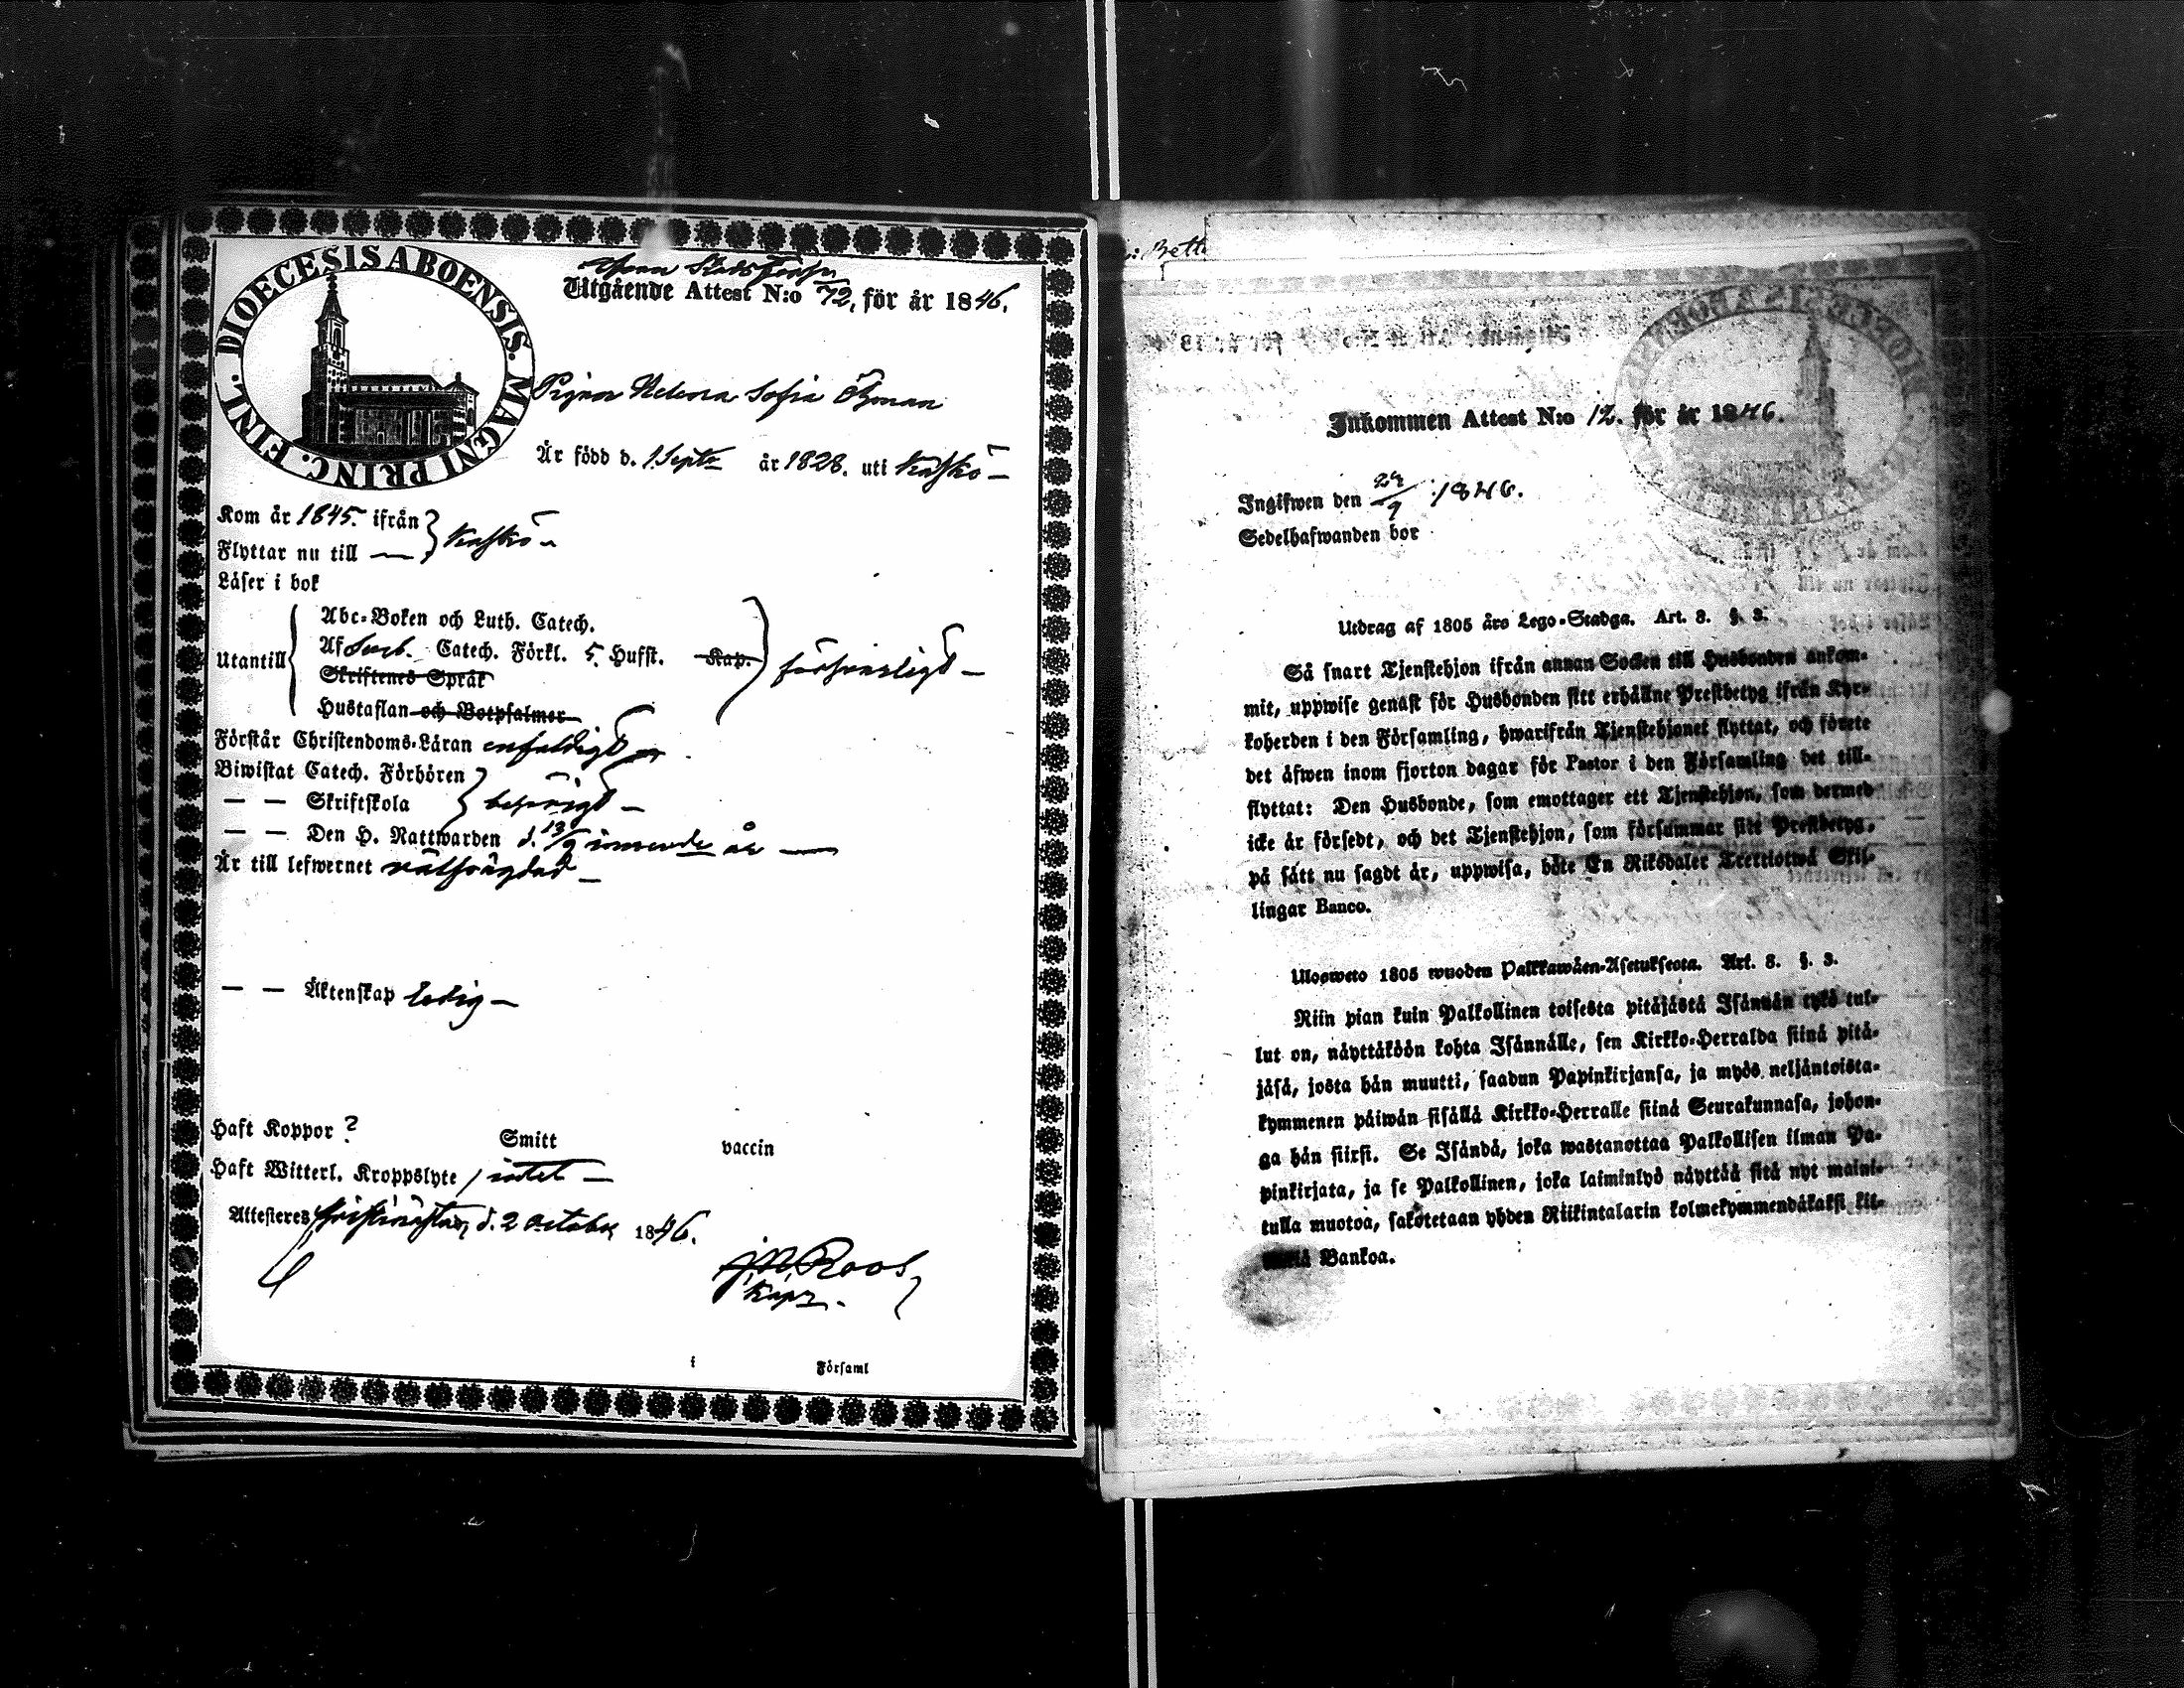 DIOECESIS ABOENSIS. MAGNI PRINC. FINL.
Utgående Attest N:o 72, för år 1846.
Pigan Helena Sofia Öhman
Är född d. 1 Septr år 1828. uti Kaskö
Kom år 1845. ifrån
Flyttar nu till — } Kaskö
Läser i bok
Utantill
Abc-Boken och Luth. Catech.
Af Catech. Förkl. 5. Hufst. Kap. försvarligt —
Skriftenes Språk
Hustaflan och Botpsalmer
Förstår Christendoms-Läran enfaldigt
Biwistat Catech. Förhören
— — Skriftskola } behörigt —
— — Den H. Nattwarden d. 13/9 innevarande år —
Är till lefwernet välfrägdad —
— — Äktenskap ledig —
Haft Koppor ? Smitt vaccin
Haft Witterl. Kroppslyte / intet —
Attesteres Kristinestad, d. 2 October 1846.
Roos
Kapn.
i Församl
: Bett
Inkommen Attest N:o 12. för år 1846.
Ingifwen den 24/9 1846.
Sedelhafwanden bor
Utdrag af 1805 års Lego-Stadga. Art. 8. §. 3.
Så snart Tjenstehjon ifrån annan Socken till Husbonden ankom-
mit, uppwise genast för Husbonden sitt erhållne Prestbetyg ifrån Kyr-
koherden i den Församling, hwarifrån Tjenstehjonet flyttat, och förete
det äfwen inom fjorton dagar för Pastor i den Församling det till-
flyttat: Den Husbonde, som emottager ett Tjenstehjon, som dermed
icke är försedt, och det Tjenstehjon, som försummar sitt Prestbetyg,
på sätt nu sagdt är, uppwisa, böte En Riksdaler Trettiotwå Skil-
lingar Banco.
Ulosweto 1805 wuoden Palkkawäen-Asetuksesta. Art. 8. §. 3.
Niin pian kuin Palkollinen toisesta pitäjästä Isännän tykö tul-
lut on, näyttäköön kohta Isännälle, sen Kirkko-Herralda siinä pitä-
jäsä, josta hän muutti, saadun Papinkirjansa, ja myös neljäntoista-
kymmenen päiwän sisällä Kirkko-Herralle siinä Seurakunnasa, johon-
ga hän siirsi. Se Isändä, joka wastanottaa Palkollisen ilman Pa-
pinkirjata, ja se Palkollinen, joka laiminlyö näyttää sitä nyt maini-
tulla muotoa, sakotetaan yhden Riikintalarin kolmekymmendäkaksi kil-
Bankoa.